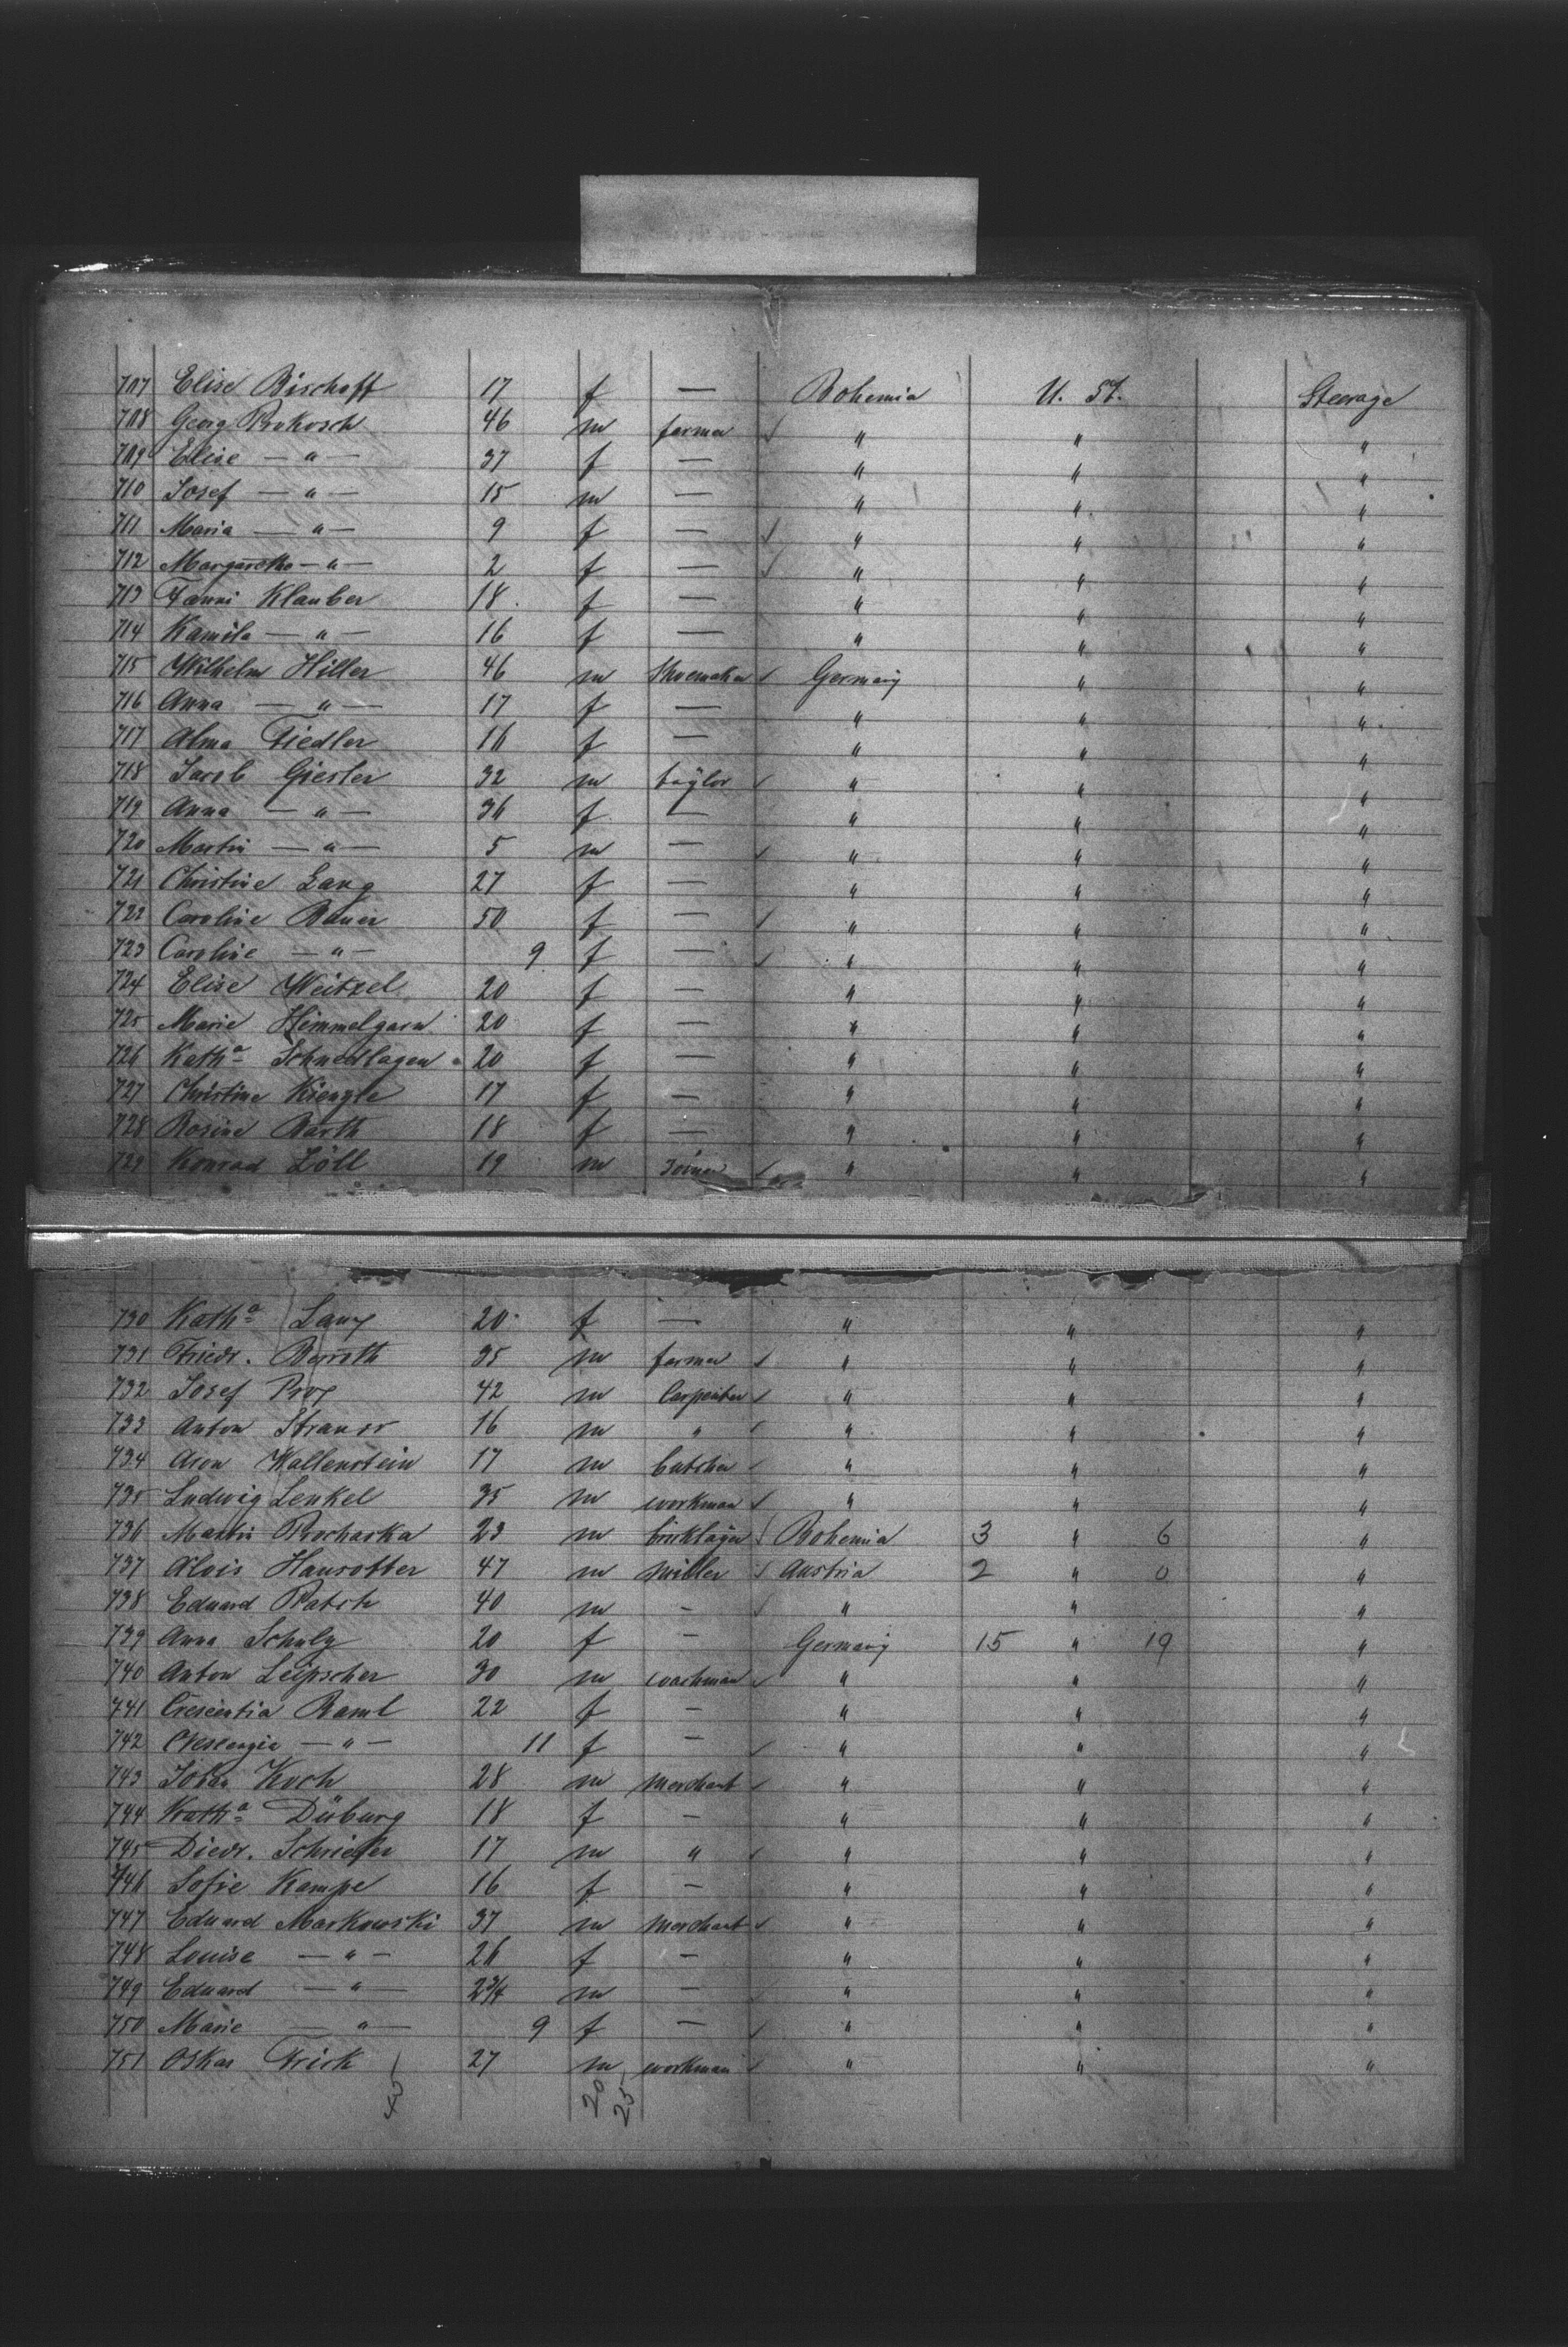 707 Elise Bischoff 17 f — Bohemia U. St. Steerage
708 Georg Prokosch 46 m farmer ✓ " " "
709 Elise — " — 37 f — " " "
710 Josef — " — 15 m — " " "
711 Maria — " — 9 f — ✓ " " "
712 Margarethe — " — 2 f — ✓ " " "
713 Fanni Klauber 18 f — " " "
714 Kamila — " — 16 f — " " "
715 Wilhelm Hiller 46 m Shoemaker ✓ Germany " "
716 Anna — " — 17 f — " " "
717 Alma Fiedler 16 f — " " "
718 Jacob Giesler 32 m taylor ✓ " " "
719 Anna — " — 36 f — " " "
720 Martin — " — 5 m — ✓ " " "
721 Christine Lang 27 f — " " "
722 Caroline Bauer 50 f — ✓ " " "
723 Caroline — " — 9 f — ✓ " " "
724 Elise Weitzel 20 f — " " "
725 Marie Himmelgarn 20 f — " " "
726 Katha Schnedlagen 20 f — " " "
727 Christine Kienzle 17 f — " " "
728 Rosine Barth 18 f — " " "
729 Konrad Zöll 19 m Joiner ✓ " " "
730 Katha Lang 20 f — " " "
731 Friedr. Berroth 35 m farmer ✓ " " "
732 Josef 42 m Carpenter ✓ " " "
733 Anton Strauss 16 m " ✓ " " "
734 Aron Wallenstein 17 m butcher ✓ " " "
735 Ludwig Lenkel 35 m workman ✓ " " "
736 Martin Prochaska 23 m bricklayer ✓ Bohemia 3 " 6 "
737 Alois Hausotter 47 m miller ✓ Austria 2 " 0 "
738 Eduard Patsch 40 m - ✓ " " "
739 Anna Schulz 20 f - Germany 15 " 19 "
740 Anton Leipscher 30 m coachman ✓ " " "
741 Crescentia Raml 22 f - " " "
742 — " — 11 f - ✓ " " "
743 Johan Koch 28 m merchant ✓ " " "
744 Katha Düburg 18 f - " " "
745 Diedr. Schriefer 17 m " ✓ " " "
746 Sofie Kampe 16 f - " " "
747 Eduard Markowski 37 m merchant ✓ " " "
748 Louise — " — 26 f - " " "
749 Eduard — " — 2¾ m - " " "
750 Marie — " — 9 f - ✓ " " "
751 Oskar Frick 27 m workman ✓ " " "
45 20 25